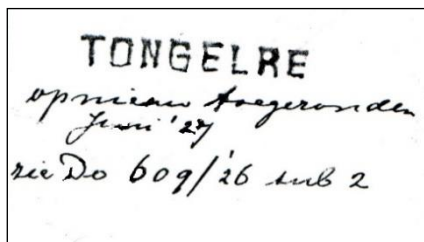 TONGELRE
opnieuw toegezonden
Juni '27
zie Do 609/'26 sub 2